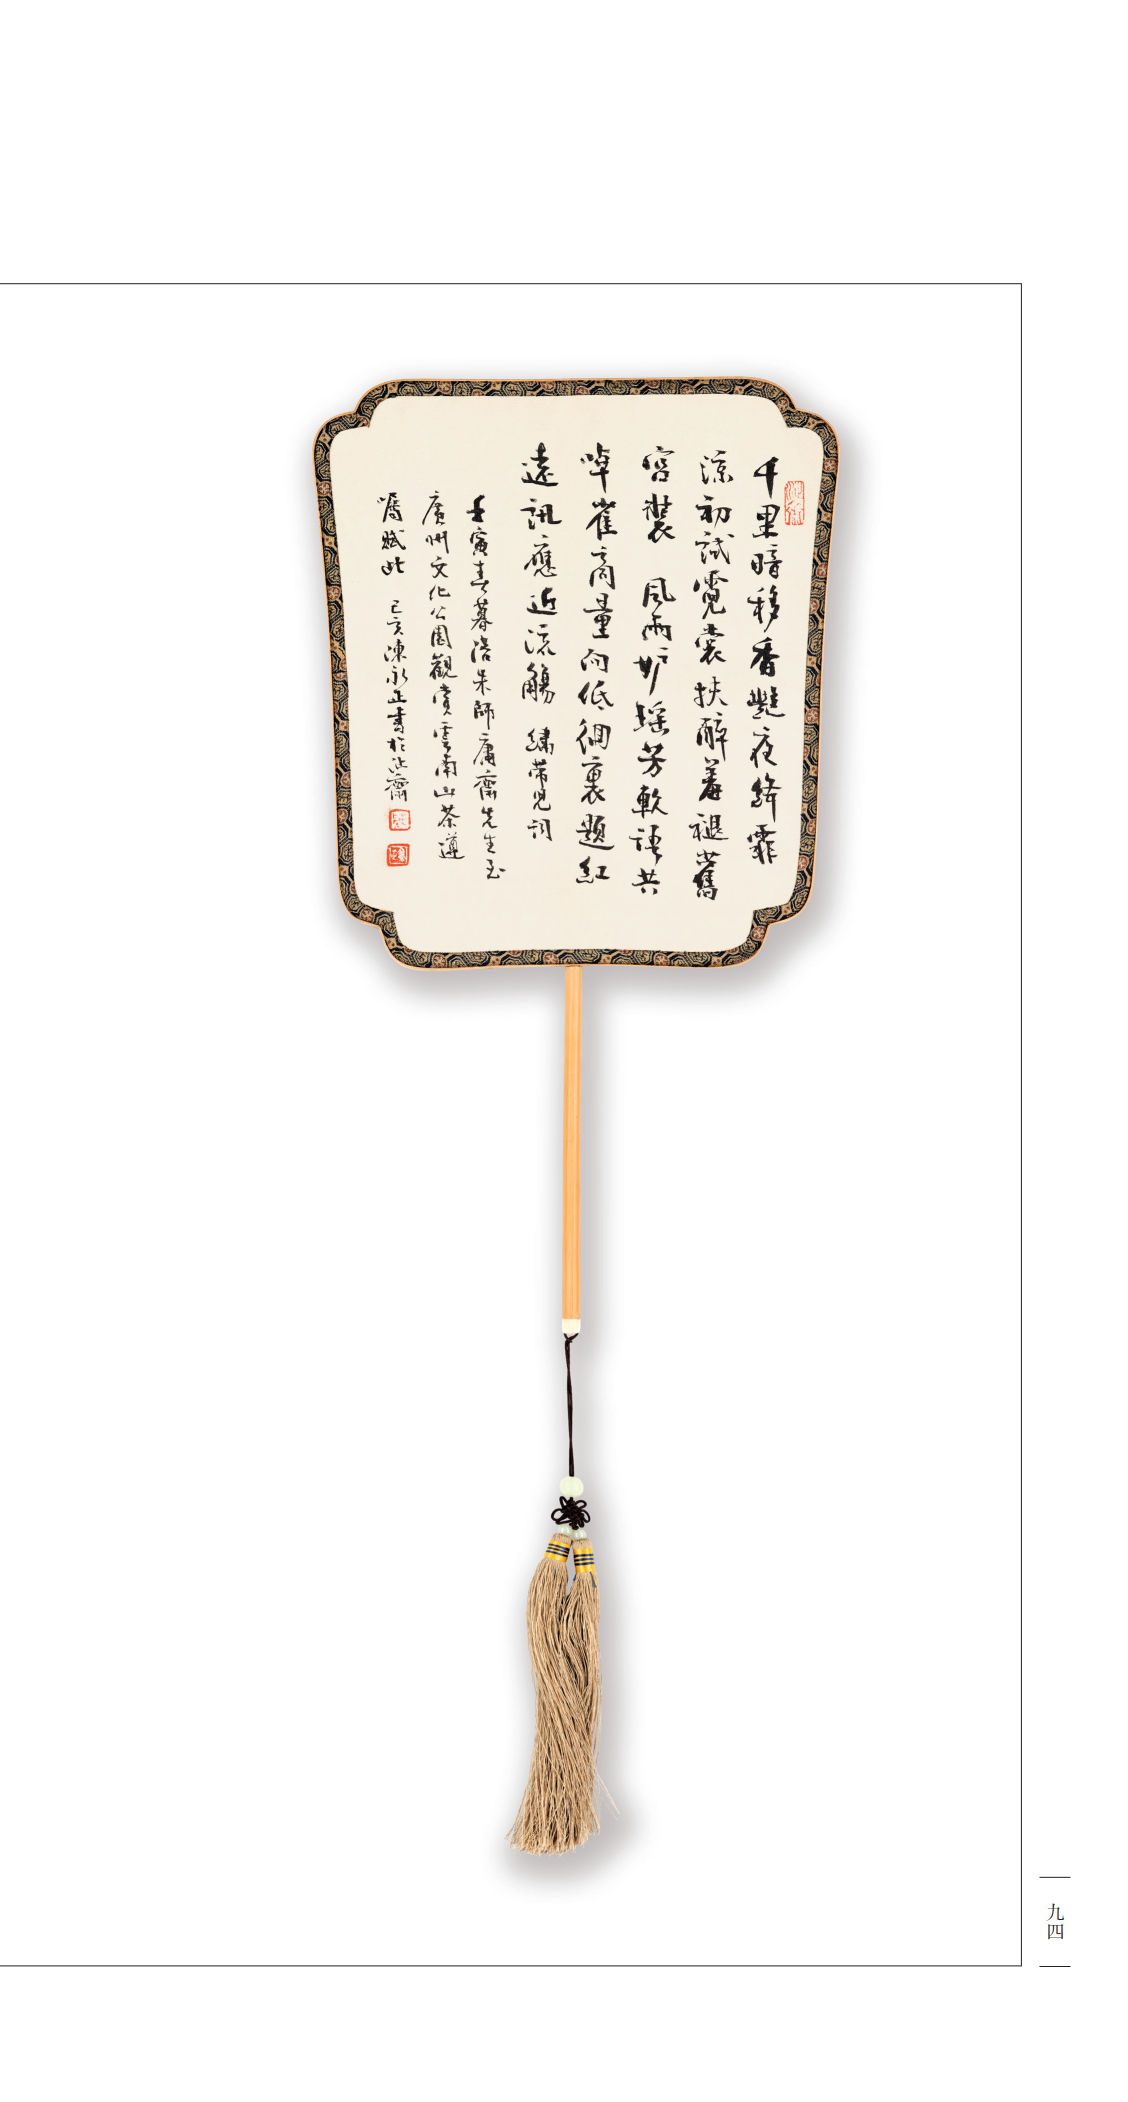 千里暗移香艷夜絳霏
涼初試霓裳扶醉羞褪舊
宮裝 風雨妒瑤芳軟語共
啅雀商量向低徊裏題紅
遠訊應近流觴 繡帶兒詞
壬寅春暮偕朱師庸齋先生至
廣州文化公園觀賞雲南山茶遵
囑賦此 己亥陳永正書於沚齋
九四